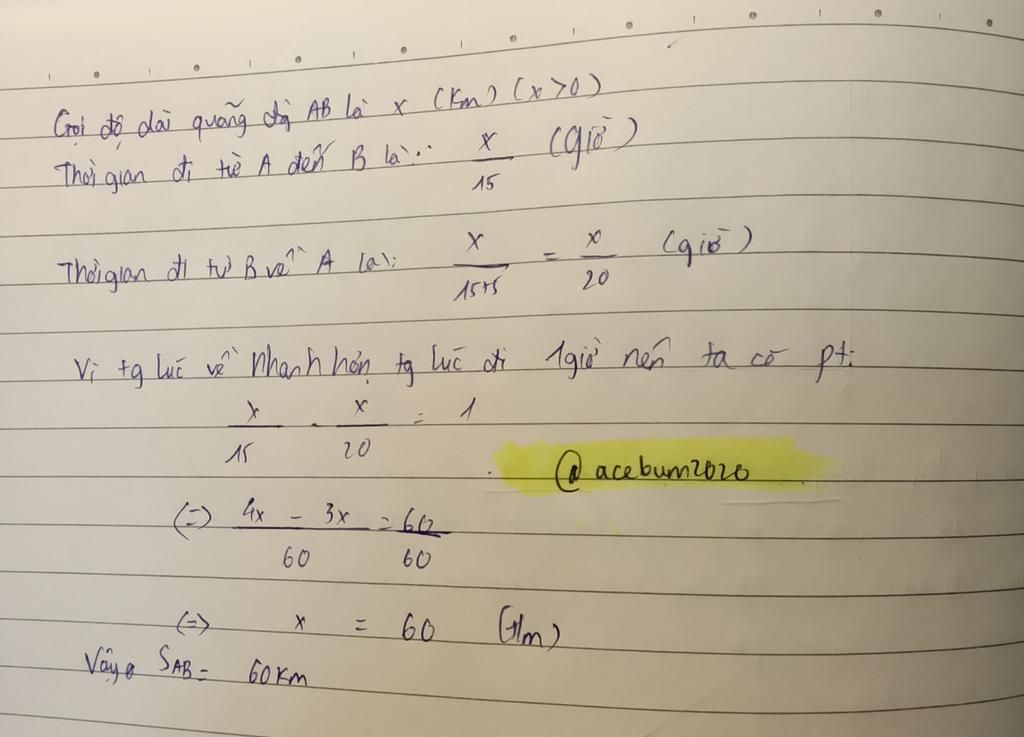 Gọi độ dài quãng đg AB là x (Km) (x>0)
Thời gian đi từ A đến B là: x/15 (giờ)
Thời gian đi từ B về A là: x/15+5 = x/20 (giờ)
Vì tg lúc về nhanh hơn tg lúc đi 1 giờ nên ta có pt:
x/15 - x/20 = 1
@acebum2020
(=) 4x - 3x/60 = 60/60
(=) x = 60 (t/m)
Vậy SAB = 60Km